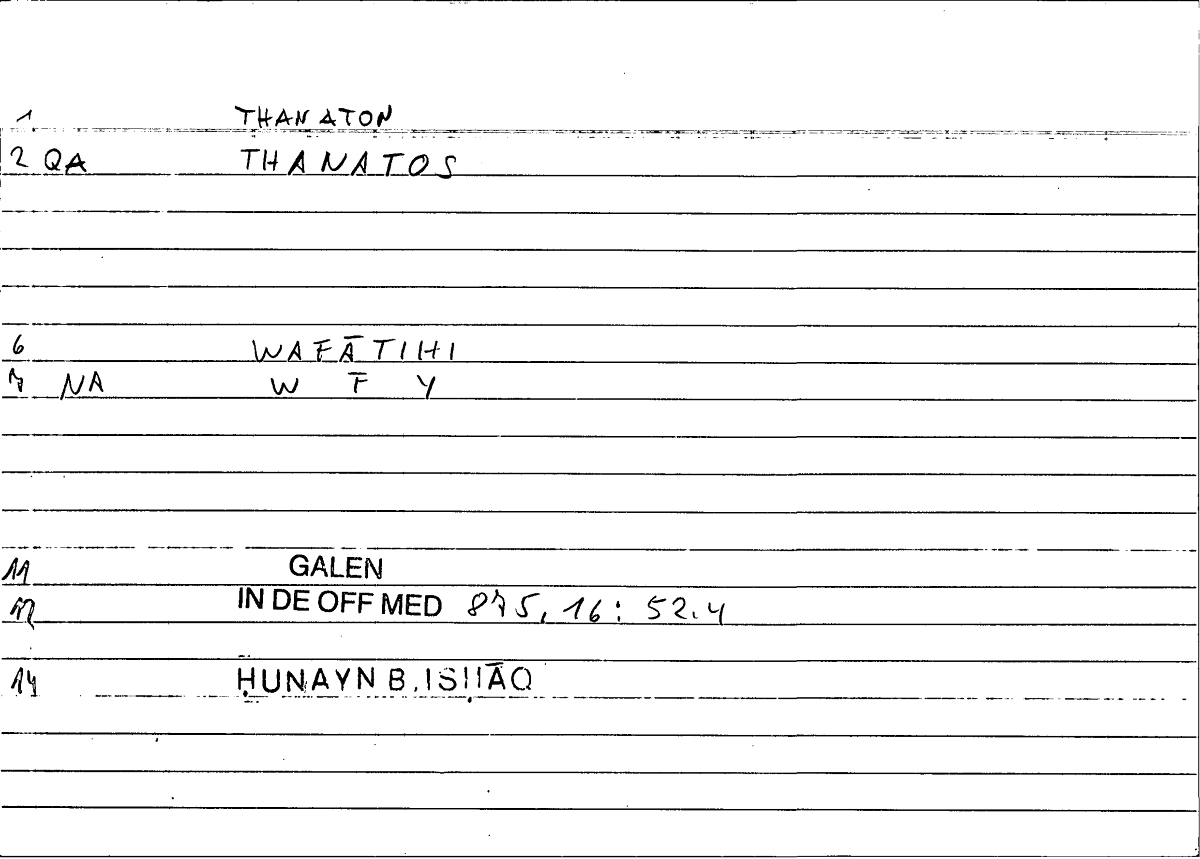 1 THANATON
2 QA THANATOS
6 WAFĀTIHI
7 NA W F Y
11 GALEN
12 IN DE OFF MED 875,16: 52.4
14 ḤUNAYN B. ISḤĀQ